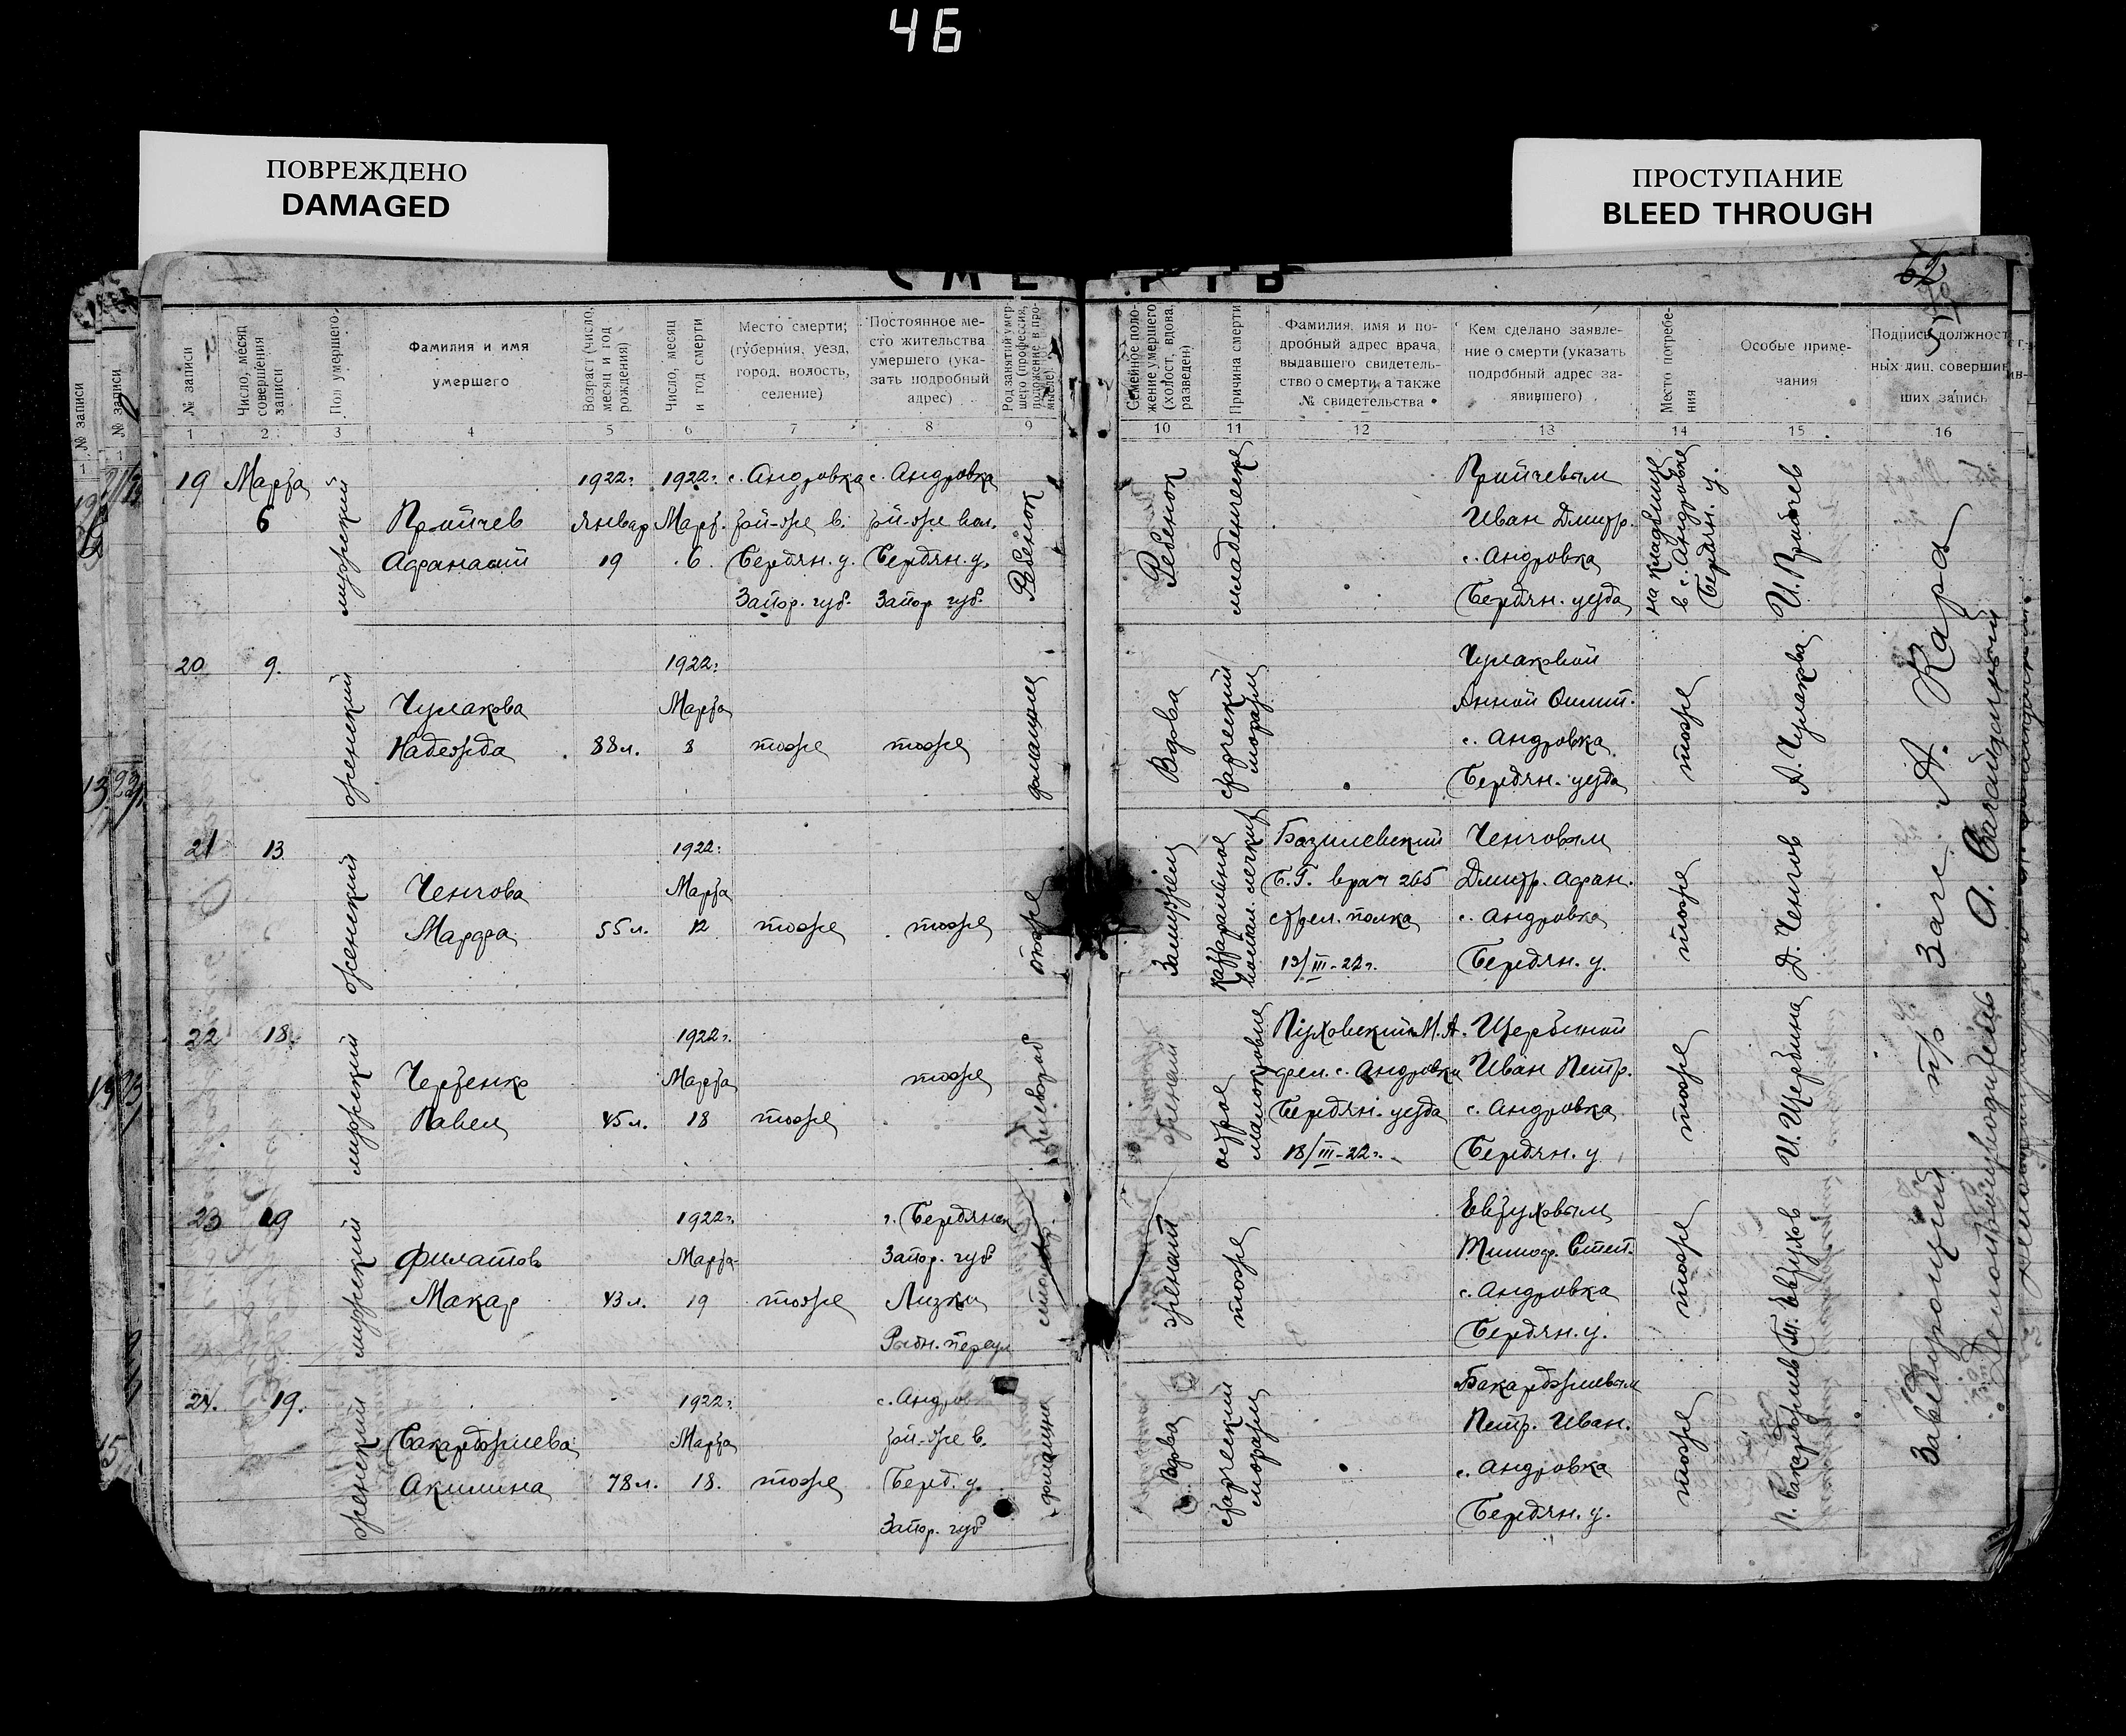 46
ПОВРЕЖДЕНО
DAMAGED
ПРОСТУПАНИЕ
BLEED THROUGH
СМЕРТЬ
№ записи
Число, месяц совершения записи
Пол умершего
Фамилия и имя
умершего
Возраст (число, месяц и год рождения)
Число, месяц и год смерти
Место смерти;
(губерния, уезд,
город, волость,
селение)
Постоянное ме-
сто жительства
умершего (ука-
зать подробный
адрес)
Род занятий умер-
шего (профессия,
положение в про-
мысле)
Семейное поло-
жение умершего
(холост, вдова,
разведен)
Причина смерти
Фамилия, имя и по-
дробный адрес врача,
выдавшего свидетель-
ство о смерти, а также
№ свидетельства
Кем сделано заявле-
ние о смерти (указать
подробный адрес за-
явившего)
Место погребе-
ния
Особые приме-
чания
Подпись должност-
ных лиц, совершив-
ших запись
1 2 3 4 5 6 7 8 9 10 11 12 13 14 15 16
19 Марта
6
мужской
Пройчев
Афанасий
1922г.
январ
19
1922г.
Март.
6.
с. Андровка
той-же в.
Бердян. у.
Запор. губ.
с. Андровка
той-же вол.
Бердян. у.
Запор. губ.
Ребенок
Ребенок
младенческ
Пройчевым
Иван Дмитр.
с. Андровка
Бердян. уезда
на кладбище
в с. Андровке
Бердян. у.
И. Пройчев
20 9.
женский
Чулакова
Надежда
88 л.
1922г.
Марта
8
тоже
тоже
домашня
Вдова
старческий
маразм
Чулаковой
Анной
с. Андровка
Бердян. уезда
тоже
А. Чулакова
21 13
женский
Ченгова
Марфа
55 л.
1922г.
Марта
12
тоже
тоже
тоже
Замужем
катаральное
воспал. легких
Базилевский
Б.Г. врач 265
стрел. полка
12/III-22г.
Ченговым
Дмитр. Афан.
с. Андровка
Бердян. у.
тоже
Д. Ченгов
22 18
мужской
Чертенко
Павел
45 л.
1922г.
Марта
18
тоже
тоже
хлебороб
женат
острое
малокровие
Пуховский М.А.
фел. с. Андровки
Бердян. уезда
18/III-22г.
Щербиной
Иван Петр.
с. Андровка
Бердян. у.
тоже
И. Щербина
23 19
мужской
Филатов
Макар
43 л.
1922г.
Марта
19
тоже
г. Бердянск
Запор. губ
Лизки
Рыбн. переул
женат
тоже
Евтуховым
Тимоф. Степ.
с. Андровка
Бердян. у.
тоже
Т. Евтухов
24. 19.
женский
Бакарджиева
Акилина
78 л.
1922г.
Марта
18.
тоже
с. Андров
той-же в.
Берд. у.
Запор. губ
домашня
Вдова
старческий
маразм
Бакарджиевым
Петр. Иван.
с. Андровка
Бердян. у.
тоже
П. Бакарджиев
Заведующий п/о Загс. А. Кара
Делопроизводитель А.